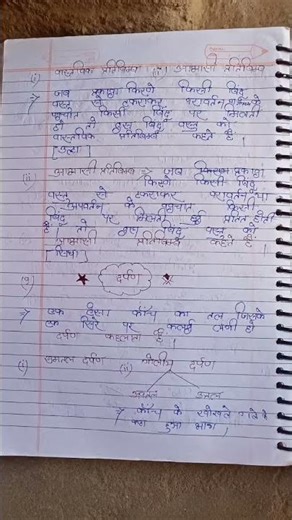 (i) वास्तविक प्रतिबिम्ब (ii) आभासी प्रतिबिम्ब
जब प्रकाश किरणे किसी बिंदु
वस्तु से टकराकर परावर्तन के
पश्चात किसी बिंदु पर मिलती
हो तो इस बिंदु वस्तु को
वास्तविक प्रतिबिम्ब कहते है।
[उल्टा]
(ii) आभासी प्रतिबिम्ब → जब प्रकाश
किरणे किसी बिंदु
वस्तु से टकराकर परावर्तन या
अपवर्तन के पश्चात किसी
बिंदु पर मिलती हुई प्रतीत होती
है तो इस बिंदु वस्तु को
आभासी प्रतिबिम्ब कहते है।
[सिधा]
दर्पण
→ एक ऐसा काँच का तल जिसके
एक सिरे पर कलई लगी हो
दर्पण कहलाता है।
(i) समतल दर्पण (ii) गोलीय दर्पण
अवतल उत्तल
→ काँच के खोखले गोले से
हुआ भाग।